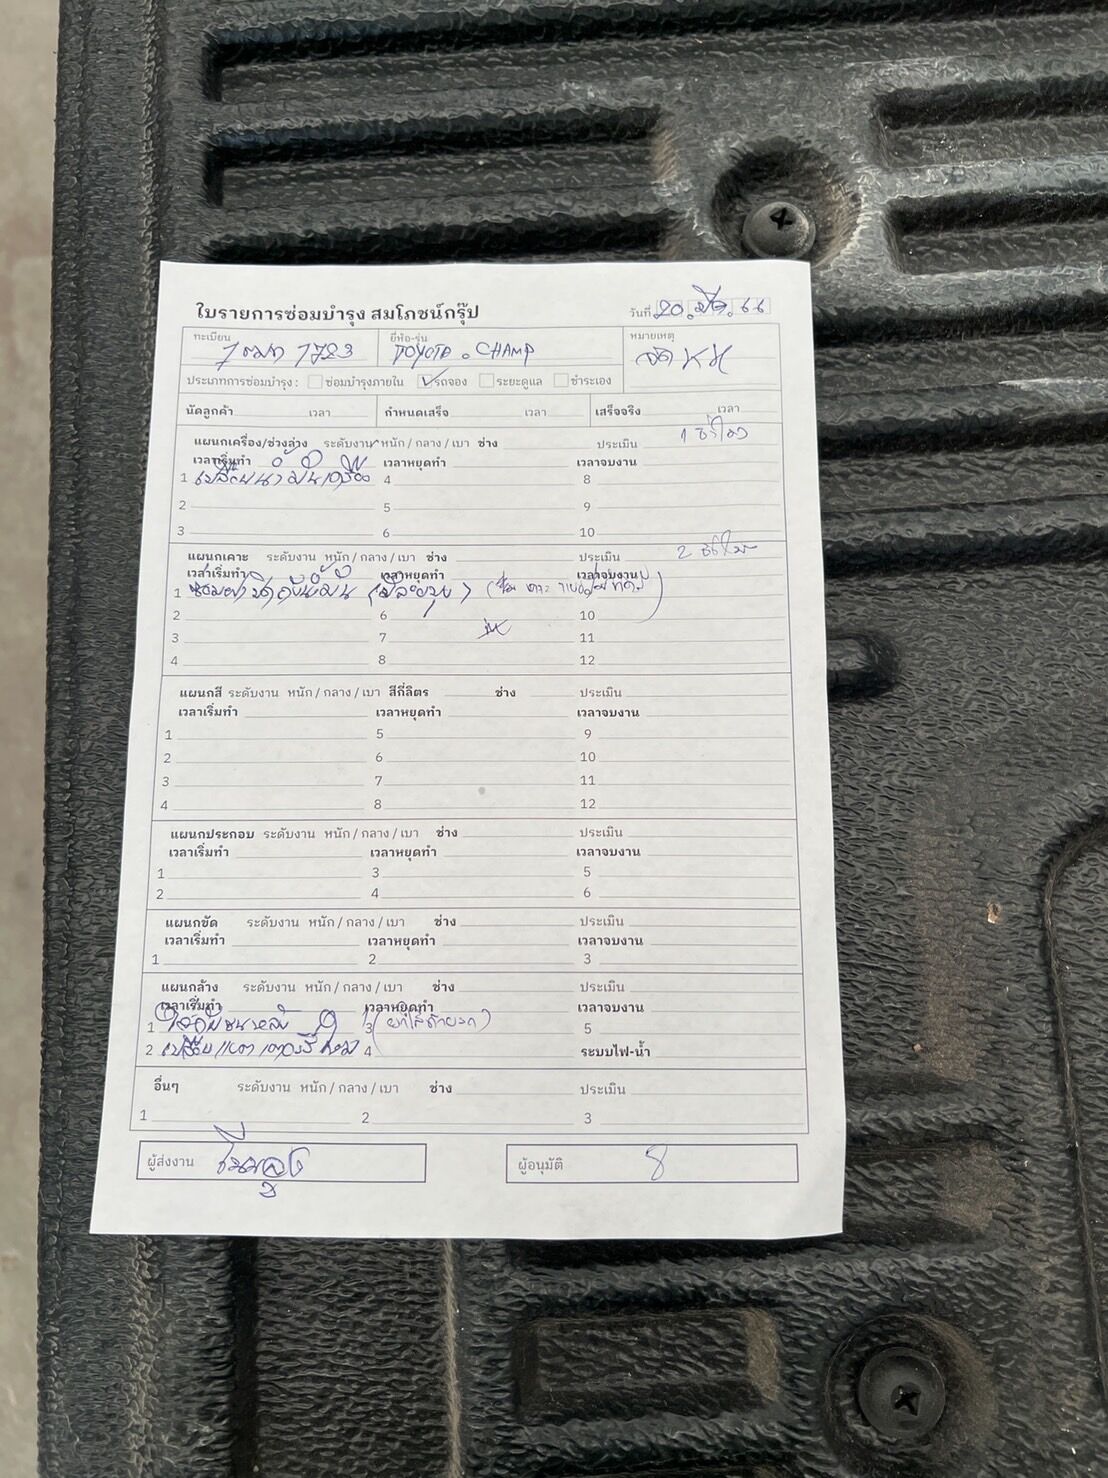 ใบรายการซ่อมบำรุง สมโภชน์กรุ๊ป
วันที่ 20 มี.ค. 66
ทะเบียน 1723
ยี่ห้อ-รุ่น TOYOTA . CHAMP
หมายเหตุ
ประเภทการซ่อมบำรุง : ซ่อมบำรุงภายใน รถจอง ระยะดูแล ชำระเอง
นัดลูกค้า เวลา กำหนดเสร็จ เวลา เสร็จจริง เวลา
แผนกเครื่อง/ช่วงล่าง ระดับงาน หนัก / กลาง / เบา ช่าง ประเมิน 1 ชั่วโมง
เวลาเริ่มทำ เวลาหยุดทำ เวลาจบงาน
1 เปลี่ยนน้ำมันเครื่อง 4 8
2 5 9
3 6 10
แผนกเคาะ ระดับงาน หนัก / กลาง / เบา ช่าง ประเมิน 2 ชั่วโมง
เวลาเริ่มทำ เวลาหยุดทำ เวลาจบงาน
1 ซ่อมฝาปิดถังน้ำมัน 
2 6 10
3 7 11
4 8 12
แผนกสี ระดับงาน หนัก / กลาง / เบา สีกี่ลิตร ช่าง ประเมิน
เวลาเริ่มทำ เวลาหยุดทำ เวลาจบงาน
1 5 9
2 6 10
3 7 11
4 8 12
แผนกประกอบ ระดับงาน หนัก / กลาง / เบา ช่าง ประเมิน
เวลาเริ่มทำ เวลาหยุดทำ เวลาจบงาน
1 3 5
2 4 6
แผนกขัด ระดับงาน หนัก / กลาง / เบา ช่าง ประเมิน
เวลาเริ่มทำ เวลาหยุดทำ เวลาจบงาน
1 2 3
แผนกล้าง ระดับงาน หนัก / กลาง / เบา ช่าง ประเมิน
เวลาเริ่มทำ เวลาหยุดทำ เวลาจบงาน
1 3 5
2 เปลี่ยนแบตเตอรี่ใหม่ 4 ระบบไฟ-น้ำ
อื่นๆ ระดับงาน หนัก / กลาง / เบา ช่าง ประเมิน
1 2 3
ผู้ส่งงาน
ผู้อนุมัติ